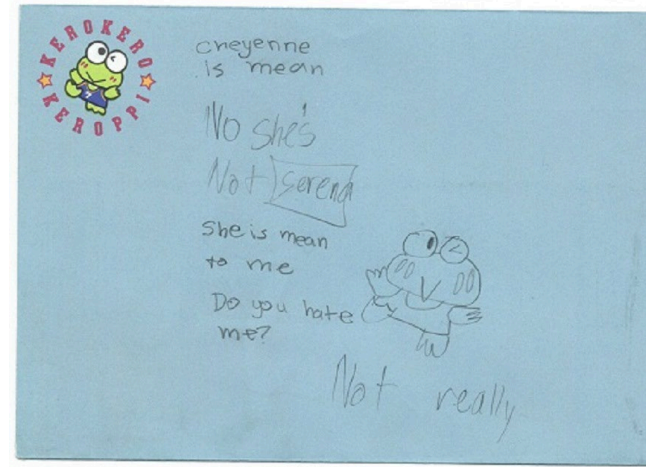 KEROKERO
KEROPPI
cheyenne
is mean
No she's
Not
She is mean
to me
Do you hate
me?
Not really